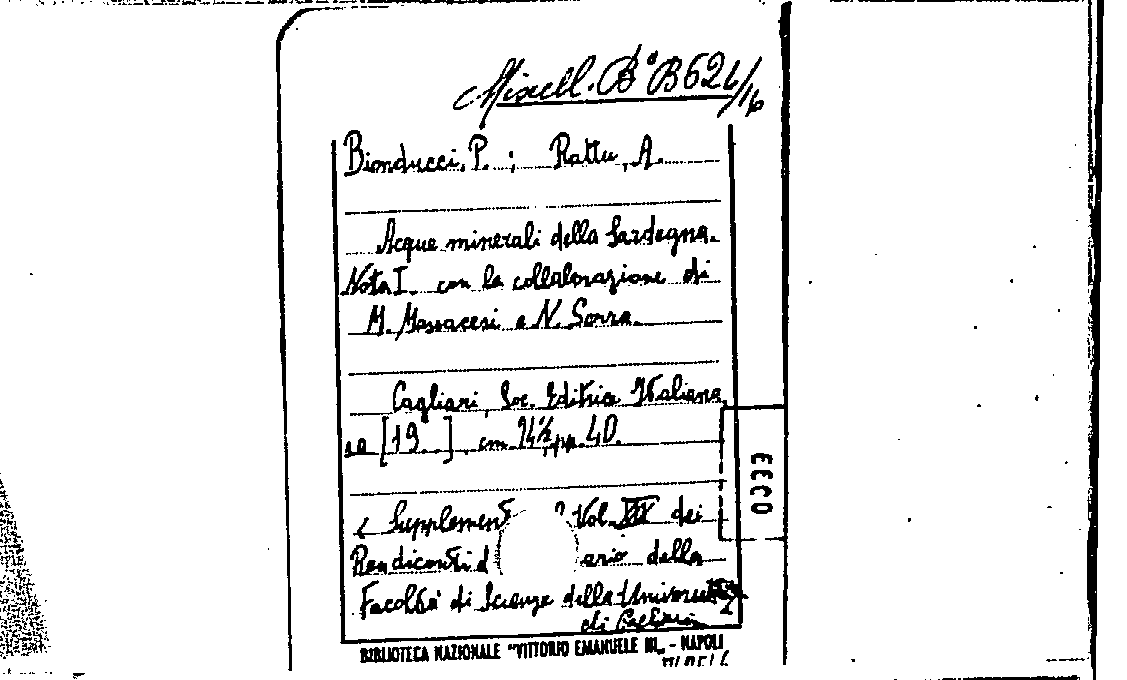 Miscell. B^a B 624/16
Bionducci, P. ; Rattu, A.
Acque minerali della Sardegna.
Nota I con la collaborazione di
M. Massacesi e N. Sonra.
Cagliari, Soc. Editrice Italiana,
sa [19 ], cm 24½, pp. 40.
( Supplement Vol. XIX dei
Rendiconti d ario della
Facoltà di Scienze della Università
di Cagliari
BIBLIOTECA NAZIONALE "VITTORIO EMANUELE III„ - NAPOLI